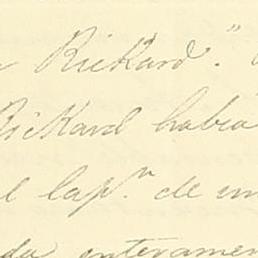 Rickard".
Rickard habia
l cap.n de un
da enteramen